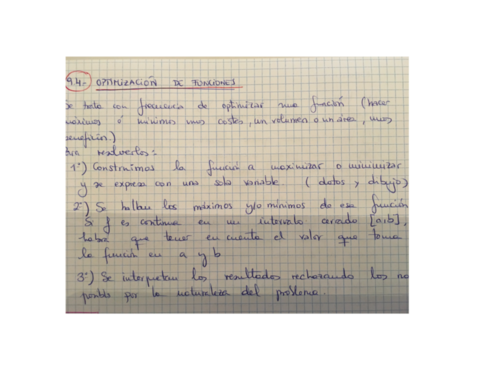 9.4.- OPTIMIZACIÓN DE FUNCIONES
Se trata con frecuencia de optimizar una función (hacer
máximos ó mínimos unos costes, un volumen o un área, unos
beneficios.)
Para resolverlos:
1º) Construimos la función a maximizar o minimizar
y se expresa con una sola variable. (datos y dibujo)
2º) Se hallan los máximos y/o mínimos de esa función
Si f es continua en un intervalo cerrado [a,b],
habrá que tener en cuenta el valor que toma
la función en a y b
3º) Se interpretan los resultados rechazando los no
posibles por la naturaleza del problema.